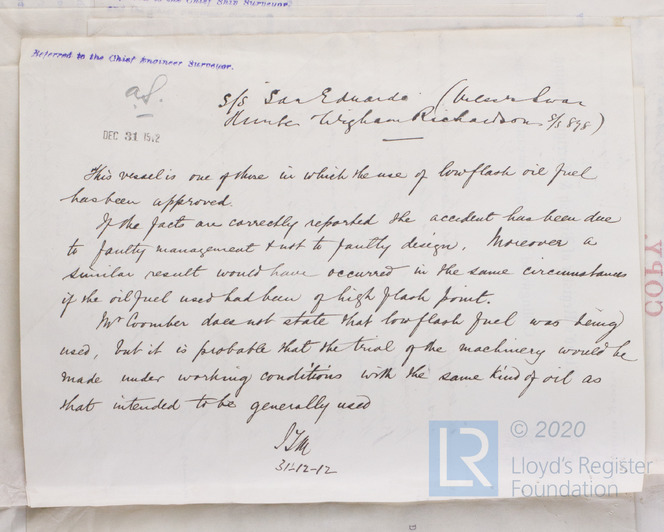 Referred to the Chief Ship Surveyor.
Referred to the Chief Engineer Surveyor.
DEC 31 1912
S/S "San Eduardo (Messrs Swan
Hunter Wigham Richardson S/S 898)
This vessel is one of those in which the use of low flash oil fuel
has been approved.
If the facts are correctly reported the accident has been due
to faulty management & not to faulty design. Moreover a
similar result would have occurred in the same circumstances
if the oil fuel used had been of high flash point.
Mr Coomber does not state that low flash fuel was being
used, but it is probable that the trial of the machinery would be
made under working conditions with the same kind of oil as
that intended to be generally used
31-12-12
COPY.
LR
© 2020
Lloyd's Register
Foundation